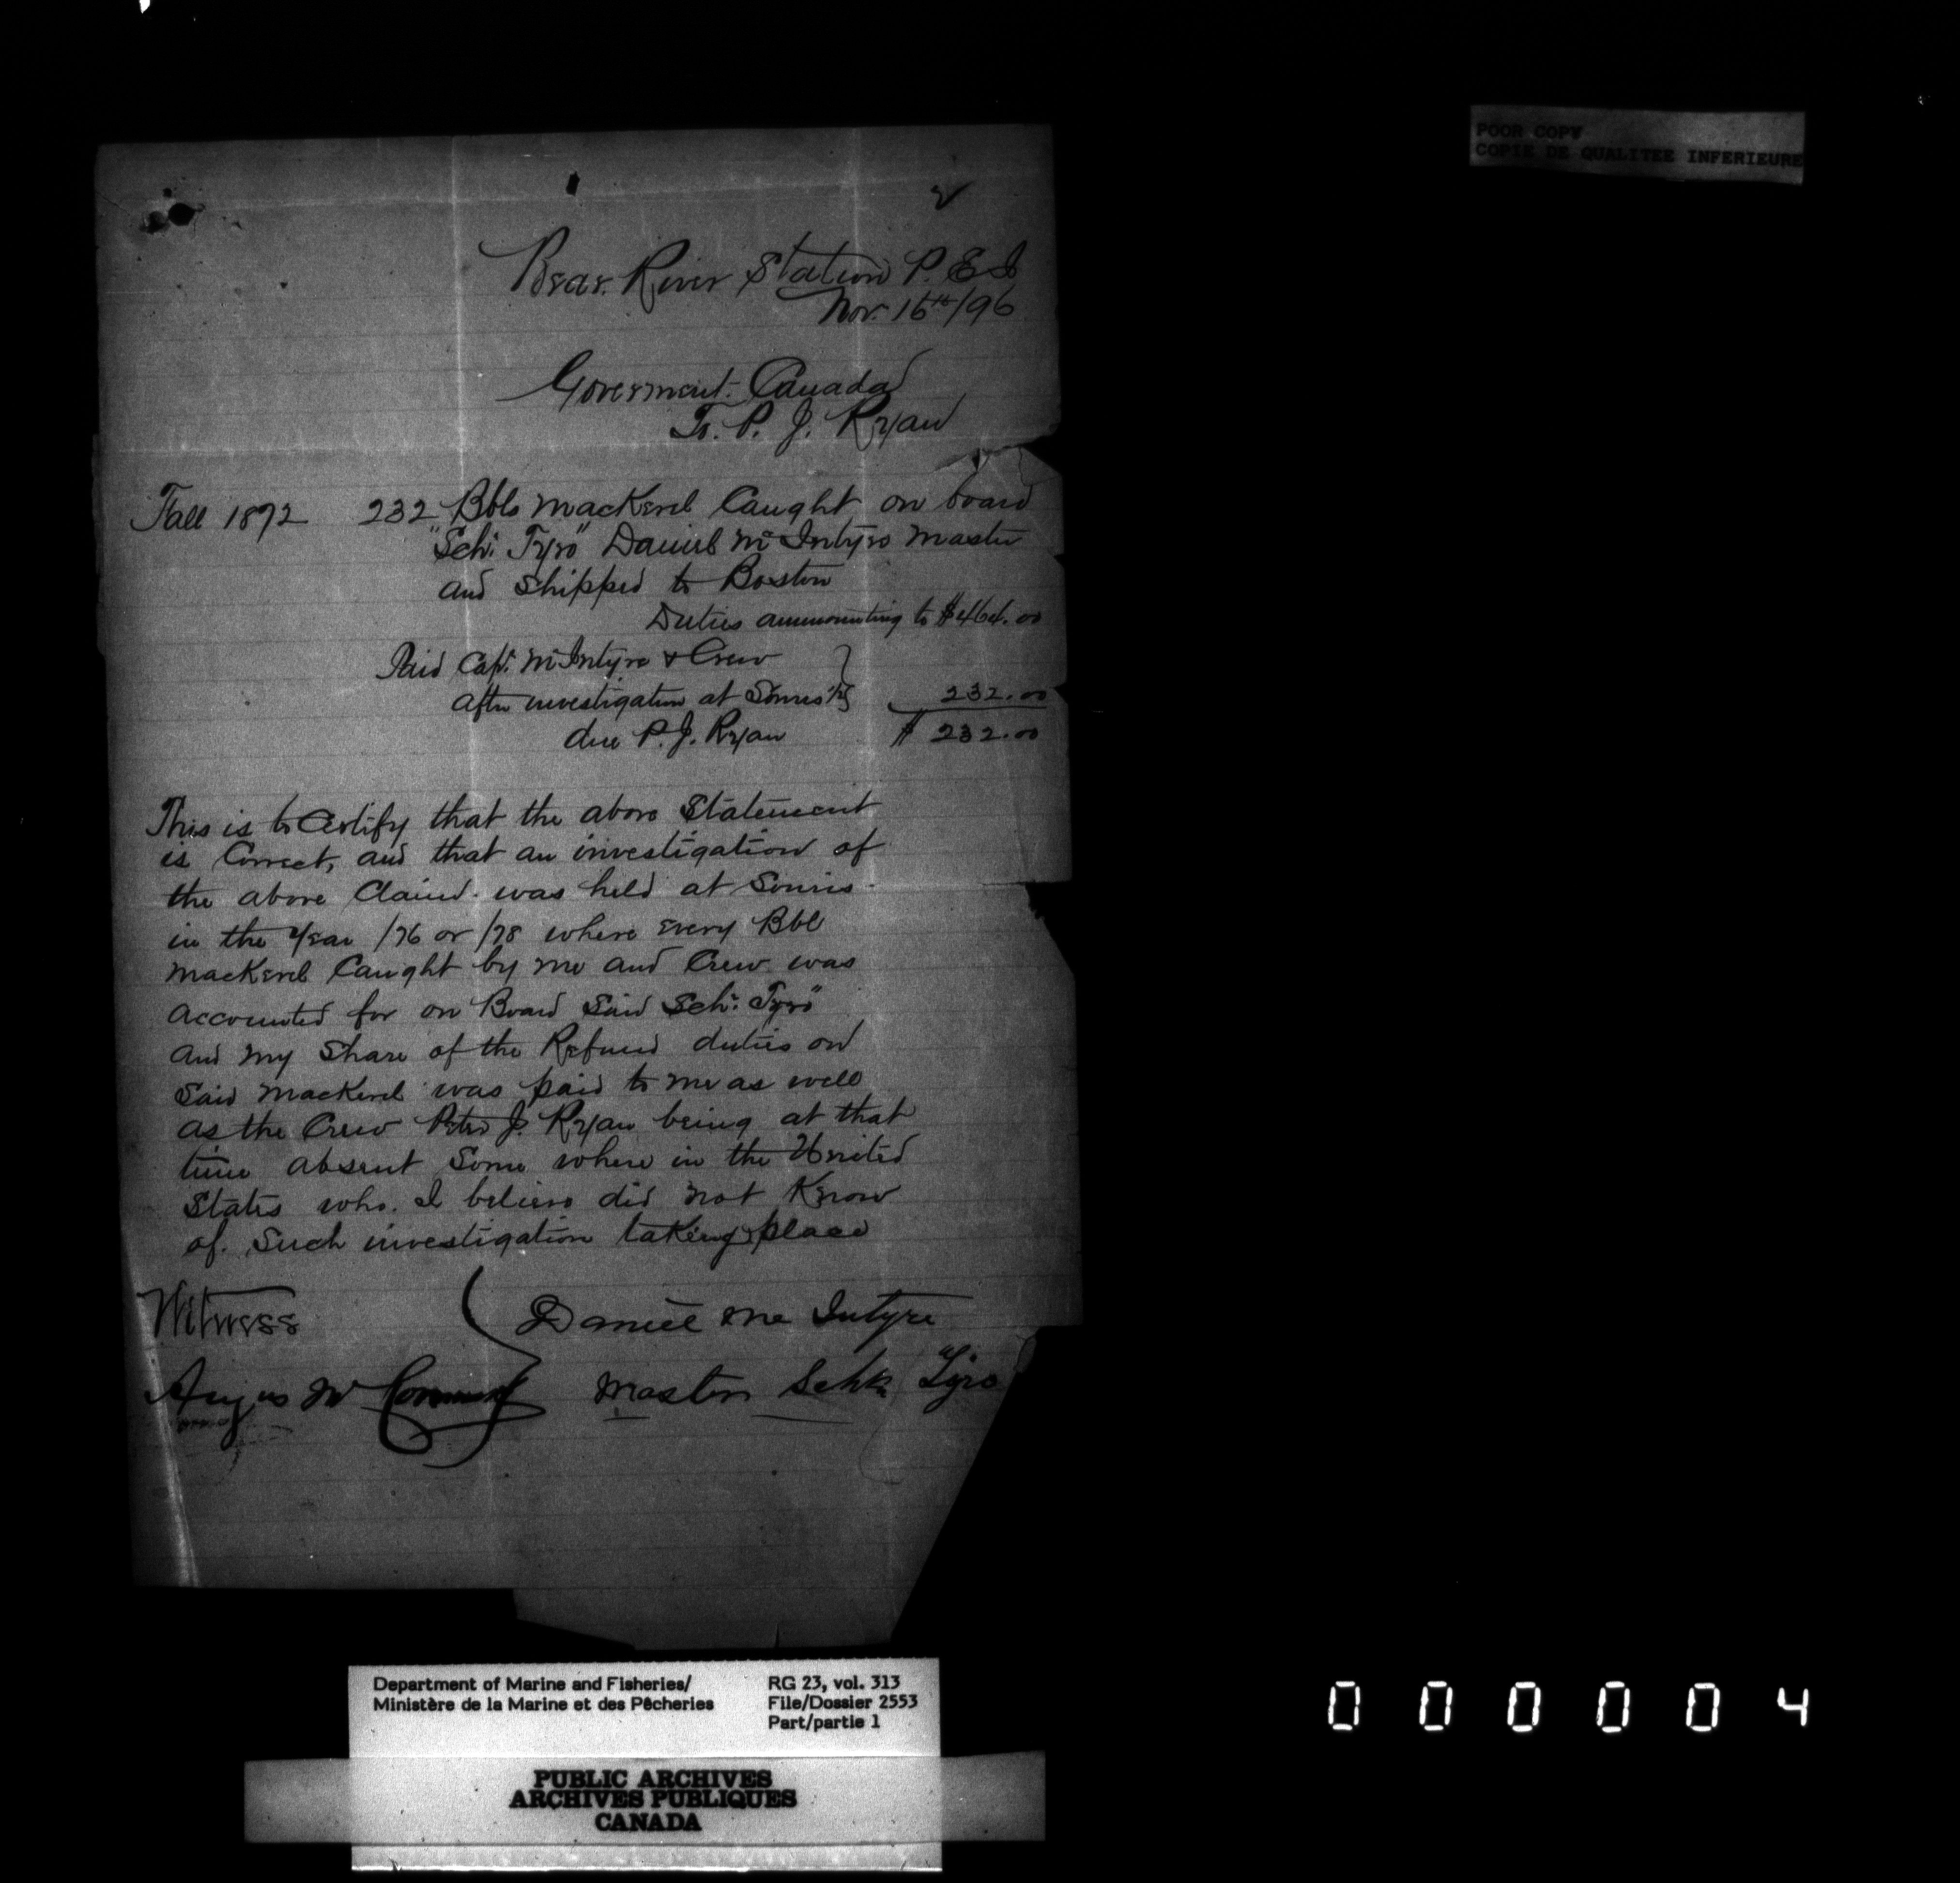 POOR COPY
COPIE DE QUALITEE INFERIEURE
2
Bear River Station P. E I
Nov. 16th/96
Goverment Canada
To. P. J. Ryan
Fall 1872 232 Bbls Mackerel Caught on board
"Schr Tyro" Daniel McIntyre Master
and Shipped to Boston
Duties ammounting to $464.00
Paid Capt. McIntyre & Crew
after investigation at Souris 232.00
due P. J. Ryan $ 232.00
This is to Certify that the above Statement
is Correct, and that an investigation of
the above Claim was held at Souris
in the Year /76 or /78 where every Bbl
Mackerel Caught by me and Crew was
accounted for on Board Said Schr. Tyro"
and my Share of the Refund duties on
Said Mackerel was paid to me as well
as the Crew Peter J. Ryan being at that
time absent Some where in the United
States who. I believe did not Know
of. Such investigation taking place
Witness Daniel Mc Intyre
Angus Mc Master Schr "Tyro
Department of Marine and Fisheries/
Ministère de la Marine et des Pêcheries
RG 23, vol. 313
File/Dossier 2553
Part/partie 1
PUBLIC ARCHIVES
ARCHIVES PUBLIQUES
CANADA
000004